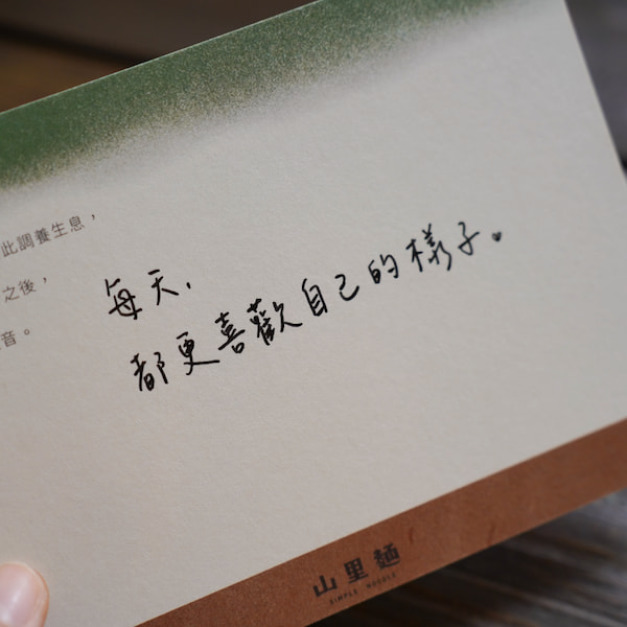 此調養生息，
之後，
音。
每天,
都更喜歡自己的樣子。
山里麵
SIMPLE NOODLE